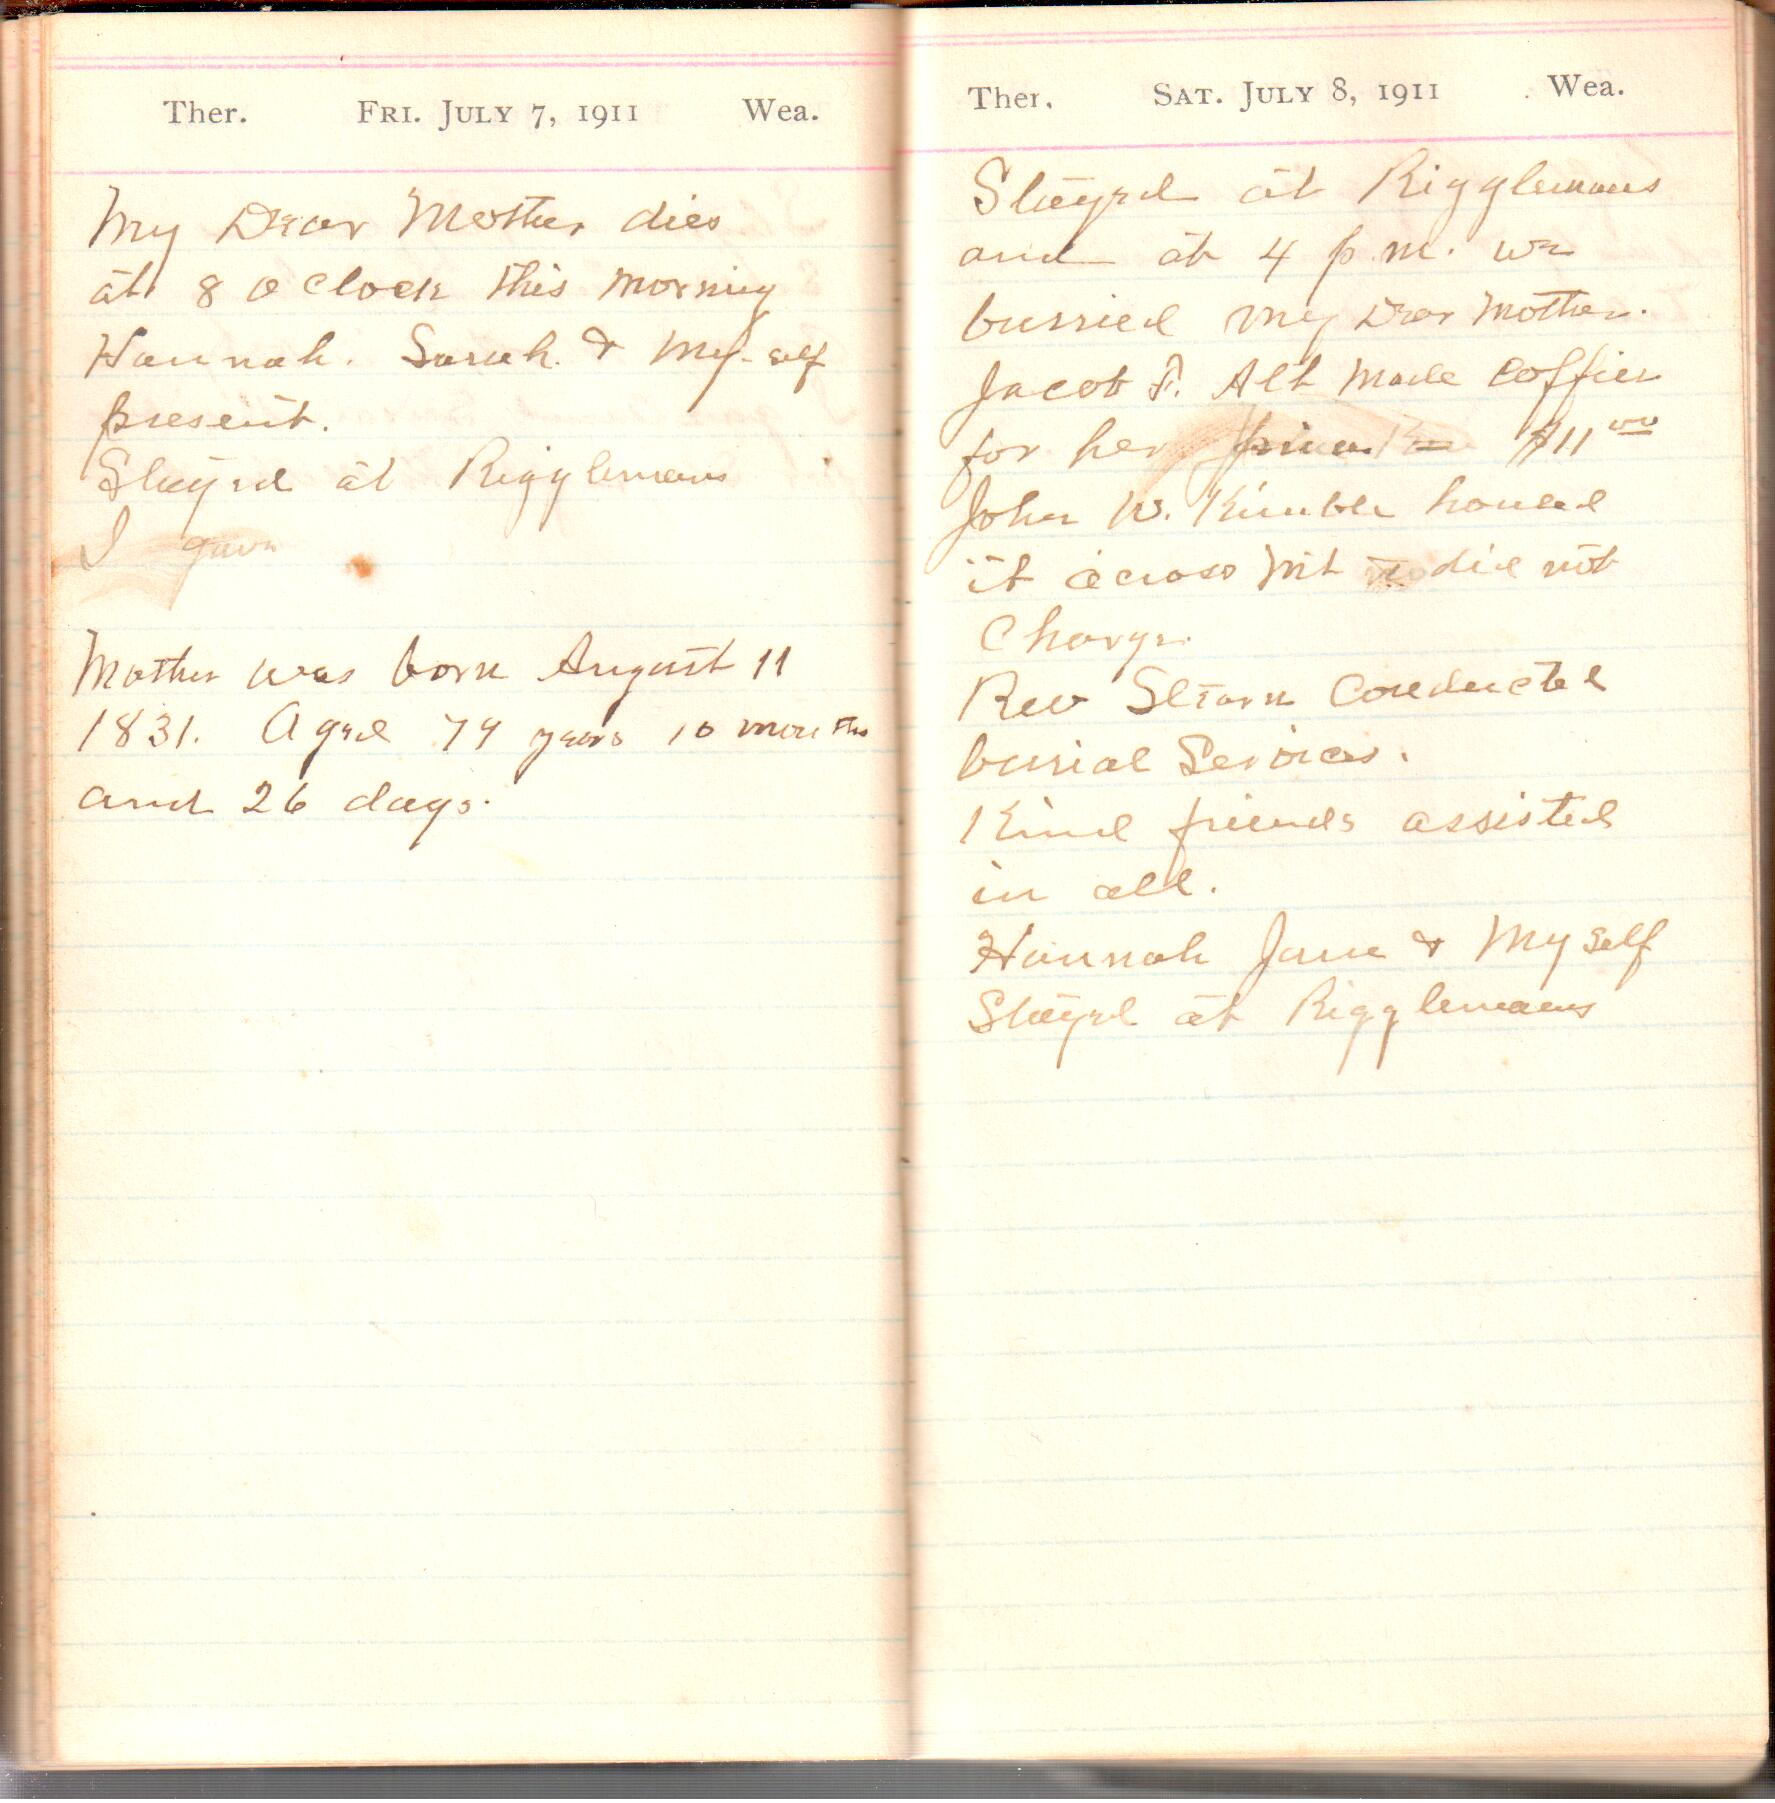 Ther. FRI. JULY 7, 1911 Wea.
My Dear Mother dies
at 8 o clock this morning
Hannah. Sarah. & My-self
present.
Stayed at Rigglemans
I gave
Mother was born August 11
1831. Aged 79 years 10 months
and 26 days.
Ther. SAT. JULY 8, 1911 Wea.
Stayed at Rigglemans
and at 4 p.m. we
burried my Dear Mother.
Jacob F. Alt made coffien
for her $11 00
John W. Kimble hauled
it across Mt did not
Charge.
Rev Stearn Conducted
burial Services.
Kind friends assisted
in all.
Hannah Jane & Myself
Stayed at Rigglemans